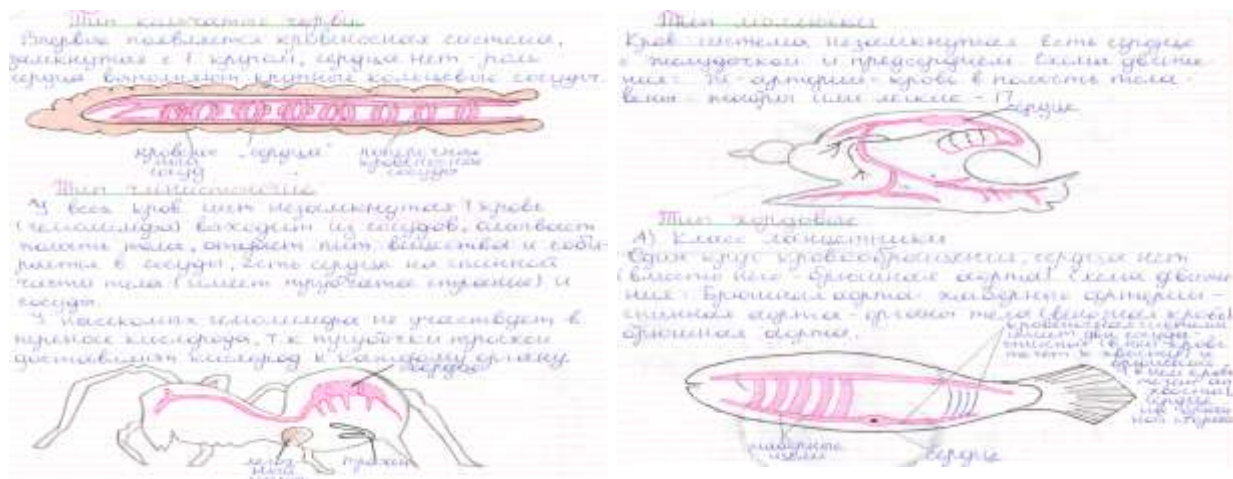 Тип кольчатые черви
Впервые появляется кровеносная система,
замкнутая с 1 кругом, сердца нет - роль
сердца выполняют крупные кольцевые сосуды.
кровенос
ный
сосуд
"сердца"
поперечные
кровеносные
сосуды
Тип членистоногие
У всех кров сист незамкнутая (кровь
(гемолимфа) выходит из сосудов, омывает
полость тела, отдает пит вещества и соби-
рается в сосуды, есть сердце на спинной
части тела (имеет трубчатое строение) и
сосуды.
У насекомых гемолимфа не участвует в
переносе кислорода, т.к трубочки трахеи
доставляют кислород к каждому органу.
сердце
трахеи
Тип моллюски
Кров система незамкнутая Есть сердце
с желудочком и предсердием Схема движе
ния: артерии - кровь в полость тела -
вены - жабры или легкие -
сердце
Тип хордовые
А) Класс ланцетники
Один круг кровообращения, сердца нет
(вместо него - брюшная аорта) Схема движе
ния: Брюшная аорта - жаберные артерии -
спинная аорта - органы тела (венозная кровь)
брюшная аорта.
кровеносная система
имеет два сосуда
спинной (в нем кровь
течет к хвосту) и
брюшной
в нем кровь
сердце
жаберные
сердце